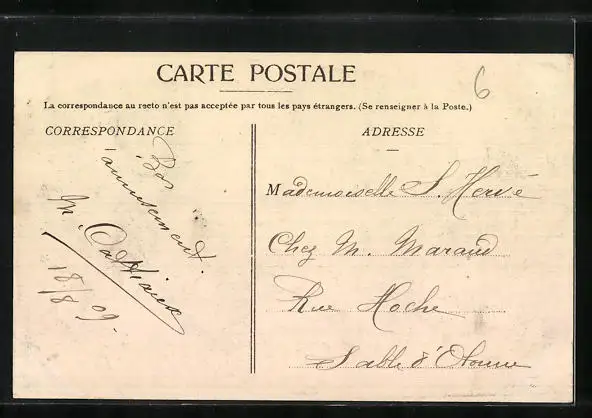 CARTE POSTALE
6
La correspondance au recto n'est pas acceptée par tous les pays étrangers. (Se renseigner à la Poste.)
CORRESPONDANCE
Bon
amusement
M.
18/8 09.
ADRESSE
Mademoiselle S. Hervé
Chez M. Maraud
Rue Hoche
Sable d'Olonne